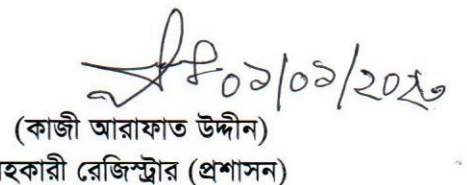 ০১/০১/২০২৩
(কাজী আরাফাত উদ্দীন)
হকারী রেজিস্ট্রার (প্রশাসন)